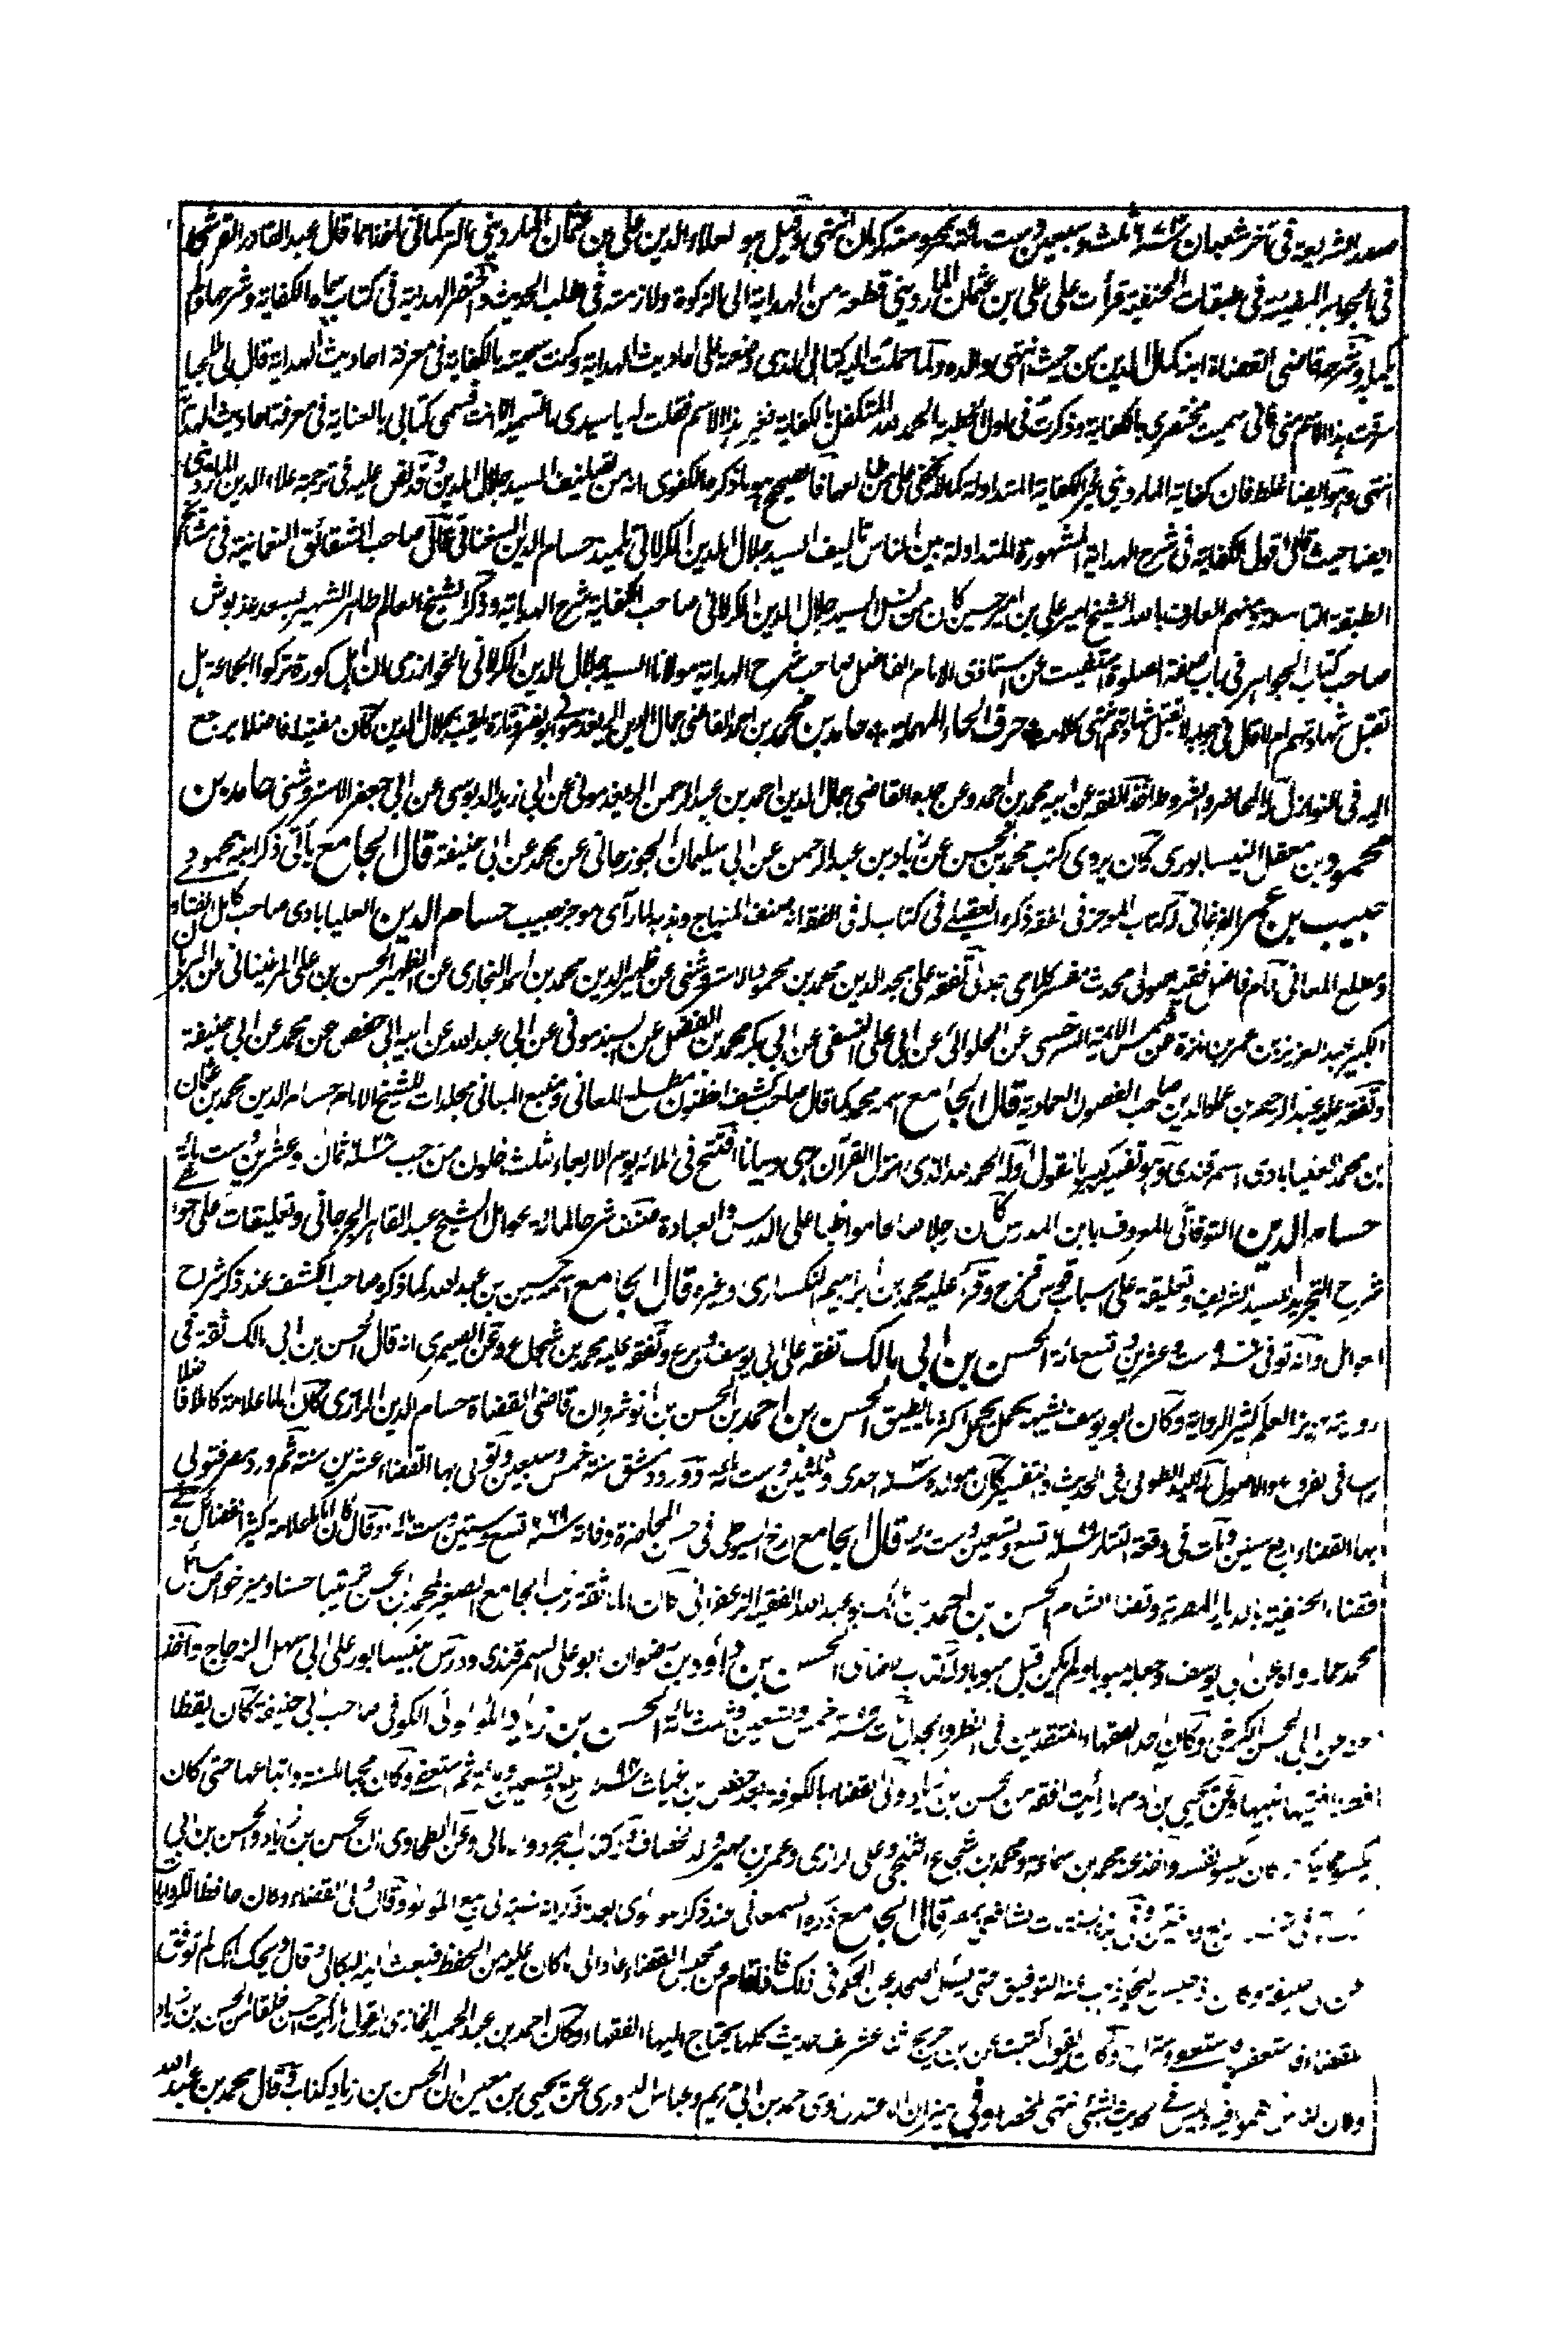 صدر الشريعة في آخر شعبان سنة ٦٧٣ ثلث وسبعين وست مائة بحروسة كركان انتهى وقيل هو لعلاء الدين علي بن عثمان المارديني التركماني اخذا مما قال عبد القادر القرشي
في الجواهر المضية في طبقات الحنفية قرأت على علي بن عثمان المارديني قطعة من الهداية الى الزكوة ولازمته في طلب الحديث واختصر الهداية في كتاب سماه الكفاية وشرحها ولم
يكمل وشرحه قاضي القضاة ابنه كمال الدين من حيث انتهى والده ولما حملت اليه كتابي الذي وضعته على احاديث الهداية وكنت سميته بالكفاية في معرفة احاديث الهداية قال لي
سرقت هذا الاسم مني فاني سميت مختصري بالكفاية وذكرت في اول الخطبة الحمد لله المتكفل بالكفاية فغير هذا الاسم فقلت له يا سيدي ما تسميه الا انت فسمى كتابي بالعناية في معرفة احاديث الهداية
انتهى وهو ايضا غلط فان كفاية المارديني غير الكفاية المتداولة كما لا يخفى على من طالعها فالصحيح هو ما ذكره الكفوي انه من تصانيف السيد جلال الدين وقد نص عليه في ترجمة علاء الدين المارديني
ايضا حيث قال اقول الكفاية في شرح الهداية المشهورة المتداولة بين الناس تأليف السيد جلال الدين الكرلاني تلميذ حسام الدين السغناقي قال صاحب الشقائق النعمانية في مشايخ
الطبقة التاسعة ومنهم العارف بالله الشيخ امير علي بن امير حسين كان من نسل السيد جلال الدين الكرلاني صاحب الكفاية شرح الهداية وذكر الشيخ العالم طاهر الشهير بسعد غدبوش
صاحب كتاب الجواهر في باب صفة الصلوة استفتيت عن استاذي الامام الفاضل صاحب شرح الهداية مولانا السيد جلال الدين الكرلاني الخوارزمي ان اهل كورة تركوا الجماعة هل
تقبل شهادتهم ام لا قال في جوابه لا تقبل شهادتهم انتهى كلامه حرف الحاء المهملة حامد بن محمد بن احمد القاضي جمال الدين الريغدموني ابو نصر وتارة يلقب بجلال الدين كان مفتيا فاضلا يرجع
اليه في النوازل والمحاضر والشروط اخذ الفقه عن ابيه محمد بن احمد وعن جده القاضي جمال الدين احمد بن عبد الرحمن الريغدموني عن ابي زيد الدبوسي عن ابي جعفر الاستروشني حامد بن
محمود بن معقل النيسابوري كان يروي كتب محمد بن الحسن عن زياد بن عبد الرحمن عن ابي سليمان الجوزجاني عن محمد عن ابي حنيفة قال الجامع يأتي ذكر ابيه محمود
حبيب بن عمر الفرغاني له كتاب الموجز في الفقه ذكره العقيلي في كتاب له في الفقه انه مصنف المنهاج وهذبه لما رآى موجز حبيب حسام الدين العليابادي صاحب كامل الفتاوى
ومطلع المعاني امام فاضل فقيه اصولي محدث مفسر كلامي جدلي تفقه على مجد الدين محمد بن محمود الاستروشني عن ظهير الدين محمد بن احمد البخاري عن الظهير الحسن بن علي المرغيناني عن البرهان
الكبير عبد العزيز بن عمر بن مازة عن شمس الائمة السرخسي عن الحلوائي عن ابي علي النسفي عن ابي بكر محمد بن الفضل عن السبذموني عن ابي عبد الله عن ابيه ابي حفص عن محمد عن ابي حنيفة
وتفقه عليه عبد الرحيم بن عماد الدين صاحب الفصول العمادية قال الجامع اسمه محمد كما قال صاحب كشف الظنون مطلع المعاني ومنبع المباني مجلدات للشيخ الامام حسام الدين محمد بن عثمان
بن محمد العليابادي السمرقندي وهو تفسير كبير بالقول اوله الحمد لله الذي انزل القرآن هدى وبيانا افتتح في املائه يوم الاربعاء لثلث خلون من رجب سنة ٦٢٨ ثمان وعشرين وست مائة
حسام الدين التوقاتي المعروف بابن المدرس كان رجلا صالحا مواظبا على الدرس والعبادة صنف شرحا لمائة عوامل الشيخ عبد القاهر الجرجاني وتعليقات على حواشي
شرح التجريد للسيد الشريف وتعليقة على اسباب قوس قزح وقرأ عليه محمد بن ابراهيم النكساري وغيره قال الجامع اسمه حسين بن عبد الله كما ذكره صاحب الكشف عند ذكر شرح
العوامل وانه توفي سنة ست وعشرين وتسعمائة الحسن بن ابي مالك تفقه على ابي يوسف وبرع وتفقه عليه محمد بن شجاع وعن الصيمري انه قال الحسن بن ابي مالك ثقة في
روايته غزير العلم كثير الرواية وكان ابو يوسف يشبهه بجمل حمل اكثر ما يطيق الحسن بن احمد بن الحسن بن انوشروان قاضي القضاة حسام الدين الرازي كان اماما علامة كاملا فاضلا
رأسا في الفروع والاصول له اليد الطولى في الحديث والتفسير كان مولده سنة احدى وثلثين وست مائة وورد دمشق سنة خمس وسبعين وتولى بها القضاء عشرين سنة ثم ورد مصر فتولى
بها القضاء اربع سنين ومات في وقعة التتار سنة تسع وتسعين وست مائة قال الجامع ارخ السيوطي في حسن المحاضرة وفاته سنة ٦٦٩ تسع وستين وست مائة وقال كان اماما علامة كثير الفضائل ولي
قضاء الحنفية بالديار المصرية وقضاء الشام الحسن بن احمد بن مالك ابو عبد الله الفقيه الزعفراني كان اماما ثقة رتب الجامع الصغير لمحمد بن الحسن ترتيبا حسنا وميز خواص مسائل
محمد عما رواه عن ابي يوسف وجعله مبوبا ولم يكن قبل مبوبا وله كتاب الاضاحي الحسن بن داؤد بن رضوان ابو علي السمرقندي ودرس بنيسابور على ابي سهل الزجاج واخذ
عنه عن ابي الحسن الكرخي وكان احد الفقهاء المتقدمين في النظر والجدل مات سنة خمس وتسعين وثلث مائة الحسن بن زياد اللؤلؤي الكوفي صاحب ابي حنيفة كان يقظا
فطنا فقيها نبيها وعن يحيى بن آدم ما رأيت افقه من الحسن بن زياد وولي القضاء بالكوفة بعد حفص بن غياث سنة اربع وتسعين ومائة ثم استعفى وكان محبا للسنة واتباعها حتى كان
يكسو مماليكه كما كان يكسو نفسه واخذ عنه محمد بن سماعة ومحمد بن شجاع الثلجي وعلي الرازي وعمر بن مهير والد الخصاف له كتاب المجرد والامالي وعن الطحاوي ان الحسن بن زياد والحسن بن ابي
مالك توفيا سنة اربع ومائتين وفي هذه السنة مات الشافعي بمصر قال الجامع ذكره السمعاني عند ذكر اللؤلؤي بعد ذكر انه نسبة الى بيع اللؤلؤ وقال ولي القضاء وكان حافظا للروايات
عن ابي حنيفة وكان اذا جلس ليحكم ذهب عنه التوفيق حتى يسأل اصحابه عن الحكم في ذلك فاذا قام عن مجلس القضاء عاد الى ما كان عليه من الحفظ فبعث اليه البكالي وقال ويحك انك لم توفق
للقضاء فاستعف فاستعفى واستراح وكان يقول كتبت عن ابن جريج اثنا عشر الف حديث كلها يحتاج اليها الفقهاء وكان احمد بن عبد الحميد الحازمي يقول ما رأيت احسن خلقا من الحسن بن زياد
وكان الناس تكلموا فيه وليس في الحديث بشئ انتهى ملخصا وفي ميزان الاعتدال روى احمد بن ابي مريم وعباس الدوري عن يحيى بن معين ان الحسن بن زياد كذاب وقال محمد بن عبد الله